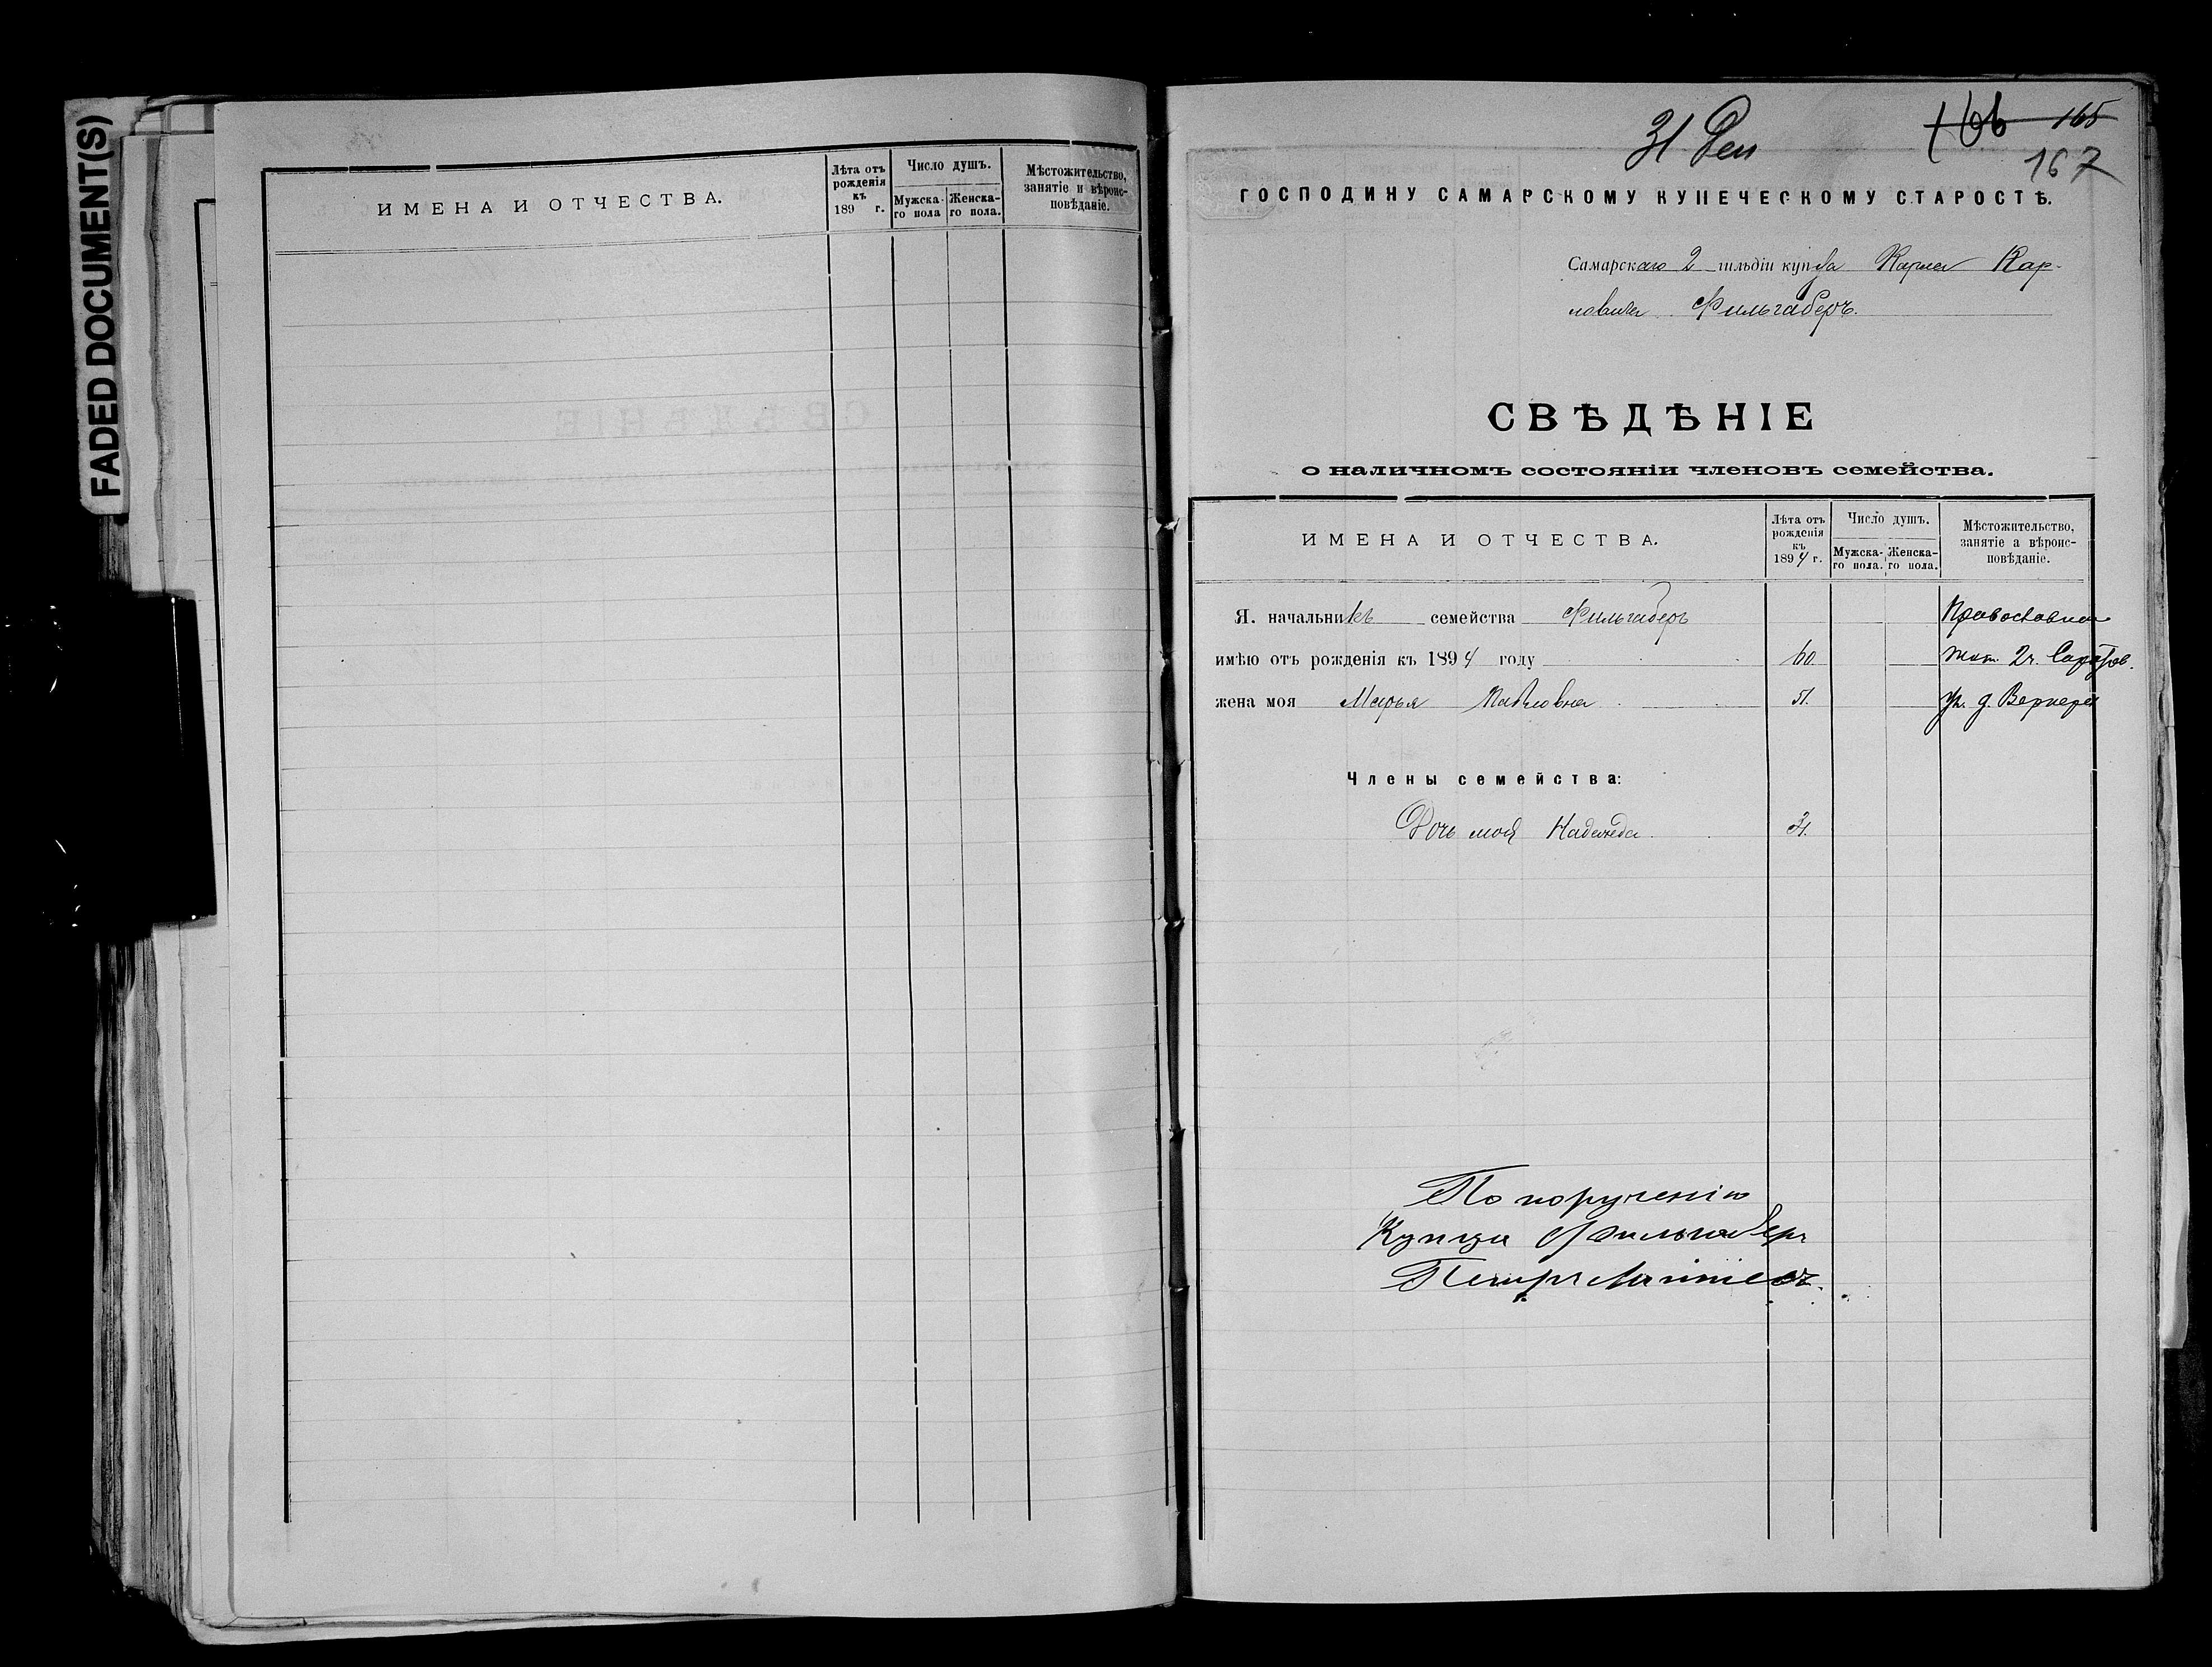 FADED DOCUMENT(S)
ИМЕНА И ОТЧЕСТВА.
Лѣта отъ рожденія къ 189 г.
Число душъ.
Мужска-го пола
Женска-го пола.
Мѣстожительство, занятіе и вѣроис-повѣданіе.
31 Дек
166 165
167
ГОСПОДИНУ САМАРСКОМУ КУПЕЧЕСКОМУ СТАРОСТѢ.
Самарскаго 2 гильдіи купца Карла Кар-
ловича Фильгаберъ.
СВѢДѢНІЕ
о наличномъ состояніи членовъ семейства.
ИМЕНА И ОТЧЕСТВА.
Лѣта отъ рожденія къ 1894 г.
Число душъ.
Мужска-го пола.
Женска-го пола.
Мѣстожительство, занятіе а вѣроис-повѣданіе.
Я. начальникъ семейства Фильгаберъ
имѣю отъ рожденія къ 1894 году 60 2ч. Саратов.
жена моя Марья Павловна 51. ул. д. Вернера
Члены семейства:
Дочь моя Надежда
По порученію
Купца Фильгаберъ
Петръ